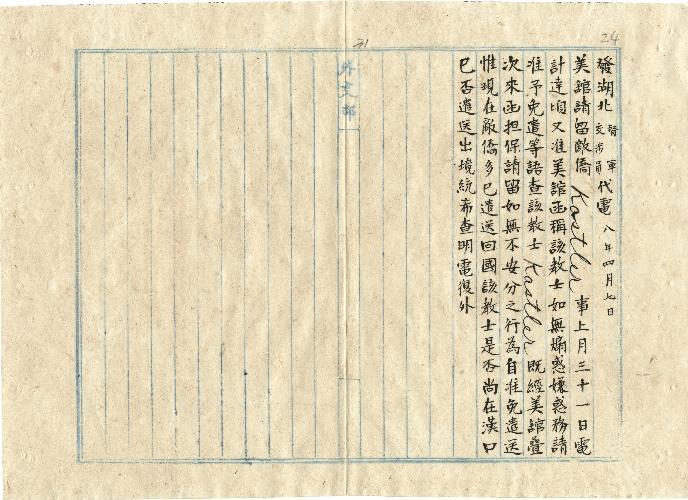 24
發湖北督軍交涉員代電 八年四月七日
美館請留敵僑 Kastler 事上月三十一日電
計達頃又准美館函稱該教士如無煽惑懷惑務請
准予免遣等語查該教士 Kastler 既經美館疊
次來函担保請留如無不安分之行為自准免遣送
惟現在敵僑多已遣送回國該教士是否尚在漢口
已否遣送出境統希查明電復外
31
外交部